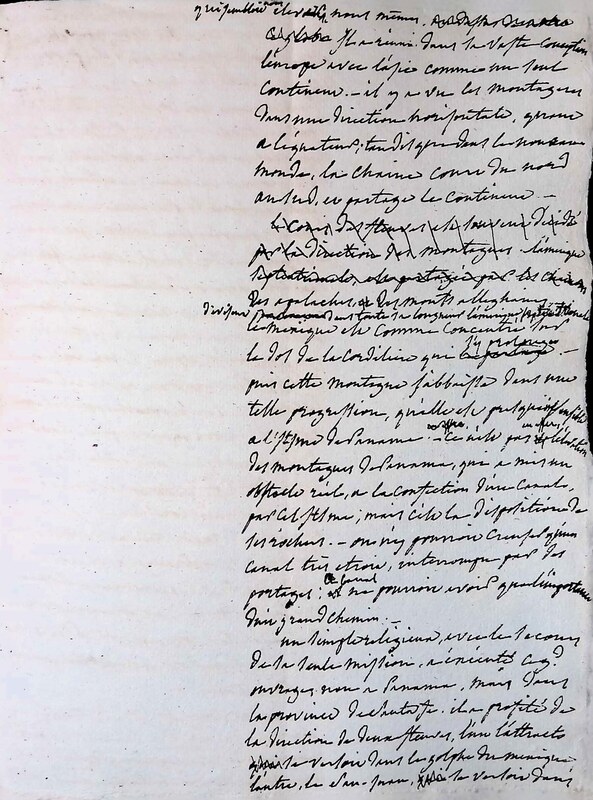 qui semblent élevés nous mêmes.
Il a réuni dans sa vaste conception
l'europe avec l'asie comme un seul
continent. — il y a vu les montagnes
dans une direction horisontale, quant
a l'équateur; tandis que dans le nouveau
monde, la chaine court du nord
au sud, et partage le continent —
le cours des fleuves est souvent décidé
par la direction des montagnes. l'amérique
septentrionale, est partagée par les chaines
des apalaches, et des monts alleghanys
divisent dans toute sa longueur l'amérique septentrionale
le mexique est comme concentré sur
le dos de la Cordiliere qui s'y prolonge —
puis cette montagne s'abbaisse dans une
telle progression, qu'elle est presque insensible
a l'istme de Panama. — ce n'est pas en effet l'élévation
des montagnes de Panama, qui a mis un
obstacle réel, a la confection d'un canal,
par cet istme; mais c'est la disposition de
ses rochers. — on n'y pourroit creuser qu'un
canal très étroit, interrompu par des
portages: ce canal ne pourroit avoir que l'importance
d'un grand chemin. —
un simple religieux, avec le secours
de sa seule mission, a exécuté cet
ouvrage, non a Panama, mais dans
la province de Santa fe. il a profité de
la direction de deux fleuves, l'un l'attracto
se versoit dans le golphe du mexique
l'autre, le San-Juan, se versoit dans